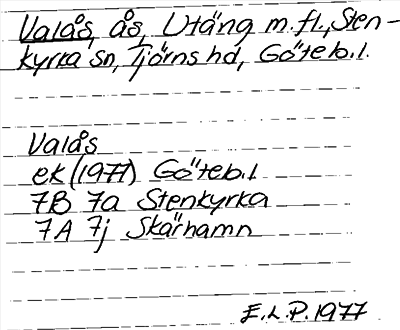 Valås, ås, Utäng m.fl., Sten-
kyrka sn, Tjörns hd, Göteb.l.
Valås
ek (1977) Göteb.l
7B 7a Stenkyrka
7A 7j Skärhamn
E.L.P. 1977